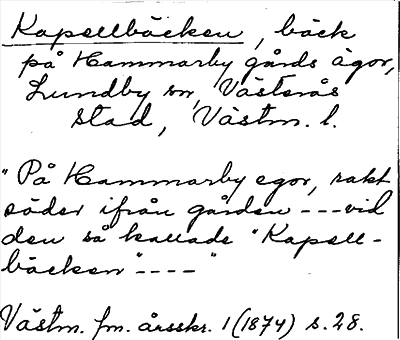 Kapellbäcken, bäck
på Hammarby gårds ägor,
Lundby sn, Västerås
stad, Västm. l.
"På Hammarby egor, rakt
söder ifrån gården ---vid
den så kallade "Kapell-
bäcken"----"
Västm. fm. årsskr. 1 (1874) s. 28.